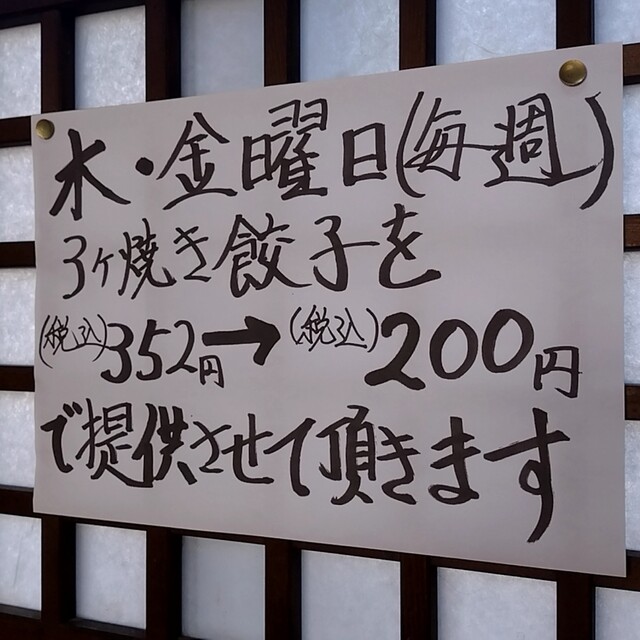 水・金曜日(毎週)
3ヶ焼き餃子を
(税込)352円→(税込)200円
で提供させて頂きます